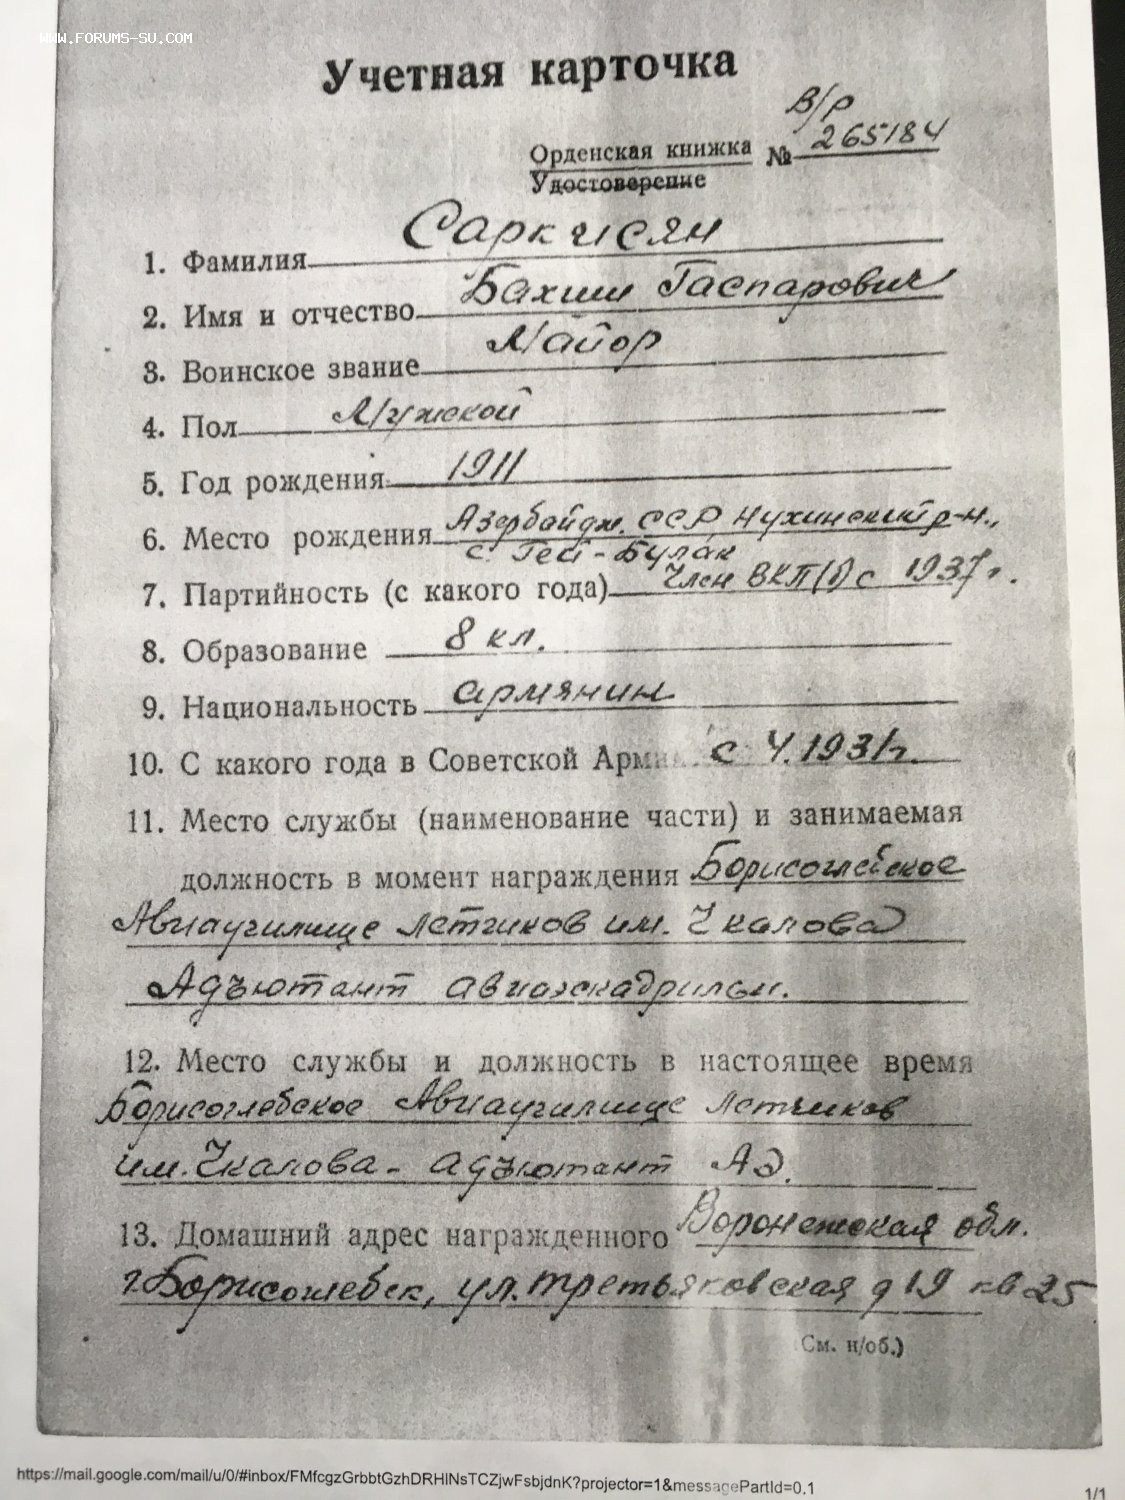 WWW.FORUMS-SU.COM
Учетная карточка
В/Р
Орденская книжка № 265184
Удостоверение
1. Фамилия Саркисян
2. Имя и отчество Бахши Гаспарович
3. Воинское звание Майор
4. Пол Мужской
5. Год рождения 1911
6. Место рождения Азербайдж. ССР Нухинский р-н.,
с. Геи-Булак
7. Партийность (с какого года) Член ВКП(б) с 1937 г.
8. Образование 8 кл.
9. Национальность армянин
10. С какого года в Советской Арми с 4.1931г.
11. Место службы (наименование части) и занимаемая
должность в момент награждения Борисоглебское
Авиаучилище летчиков им. Чкалова
Адъютант авиаэскадрильи.
12. Место службы и должность в настоящее время
Борисоглебское Авиаучилище летчиков
им. Чкалова - адъютант АЭ.
13. Домашний адрес награжденного Воронежская обл.
г. Борисоглебск, ул. Третьяковская д 19 кв 25
См. н/об.)
https://mail.google.com/mail/u/0/#inbox/FMfcgzGrbbtGzhDRHlNsTCZjwFsbjdnK?projector=1&messagePartId=0.1
1/1